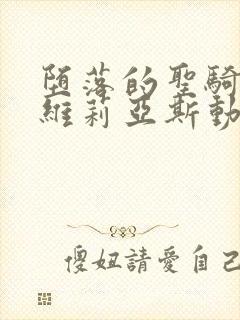 堕落的聖騎
維莉亞斯動
傻妞請愛自己